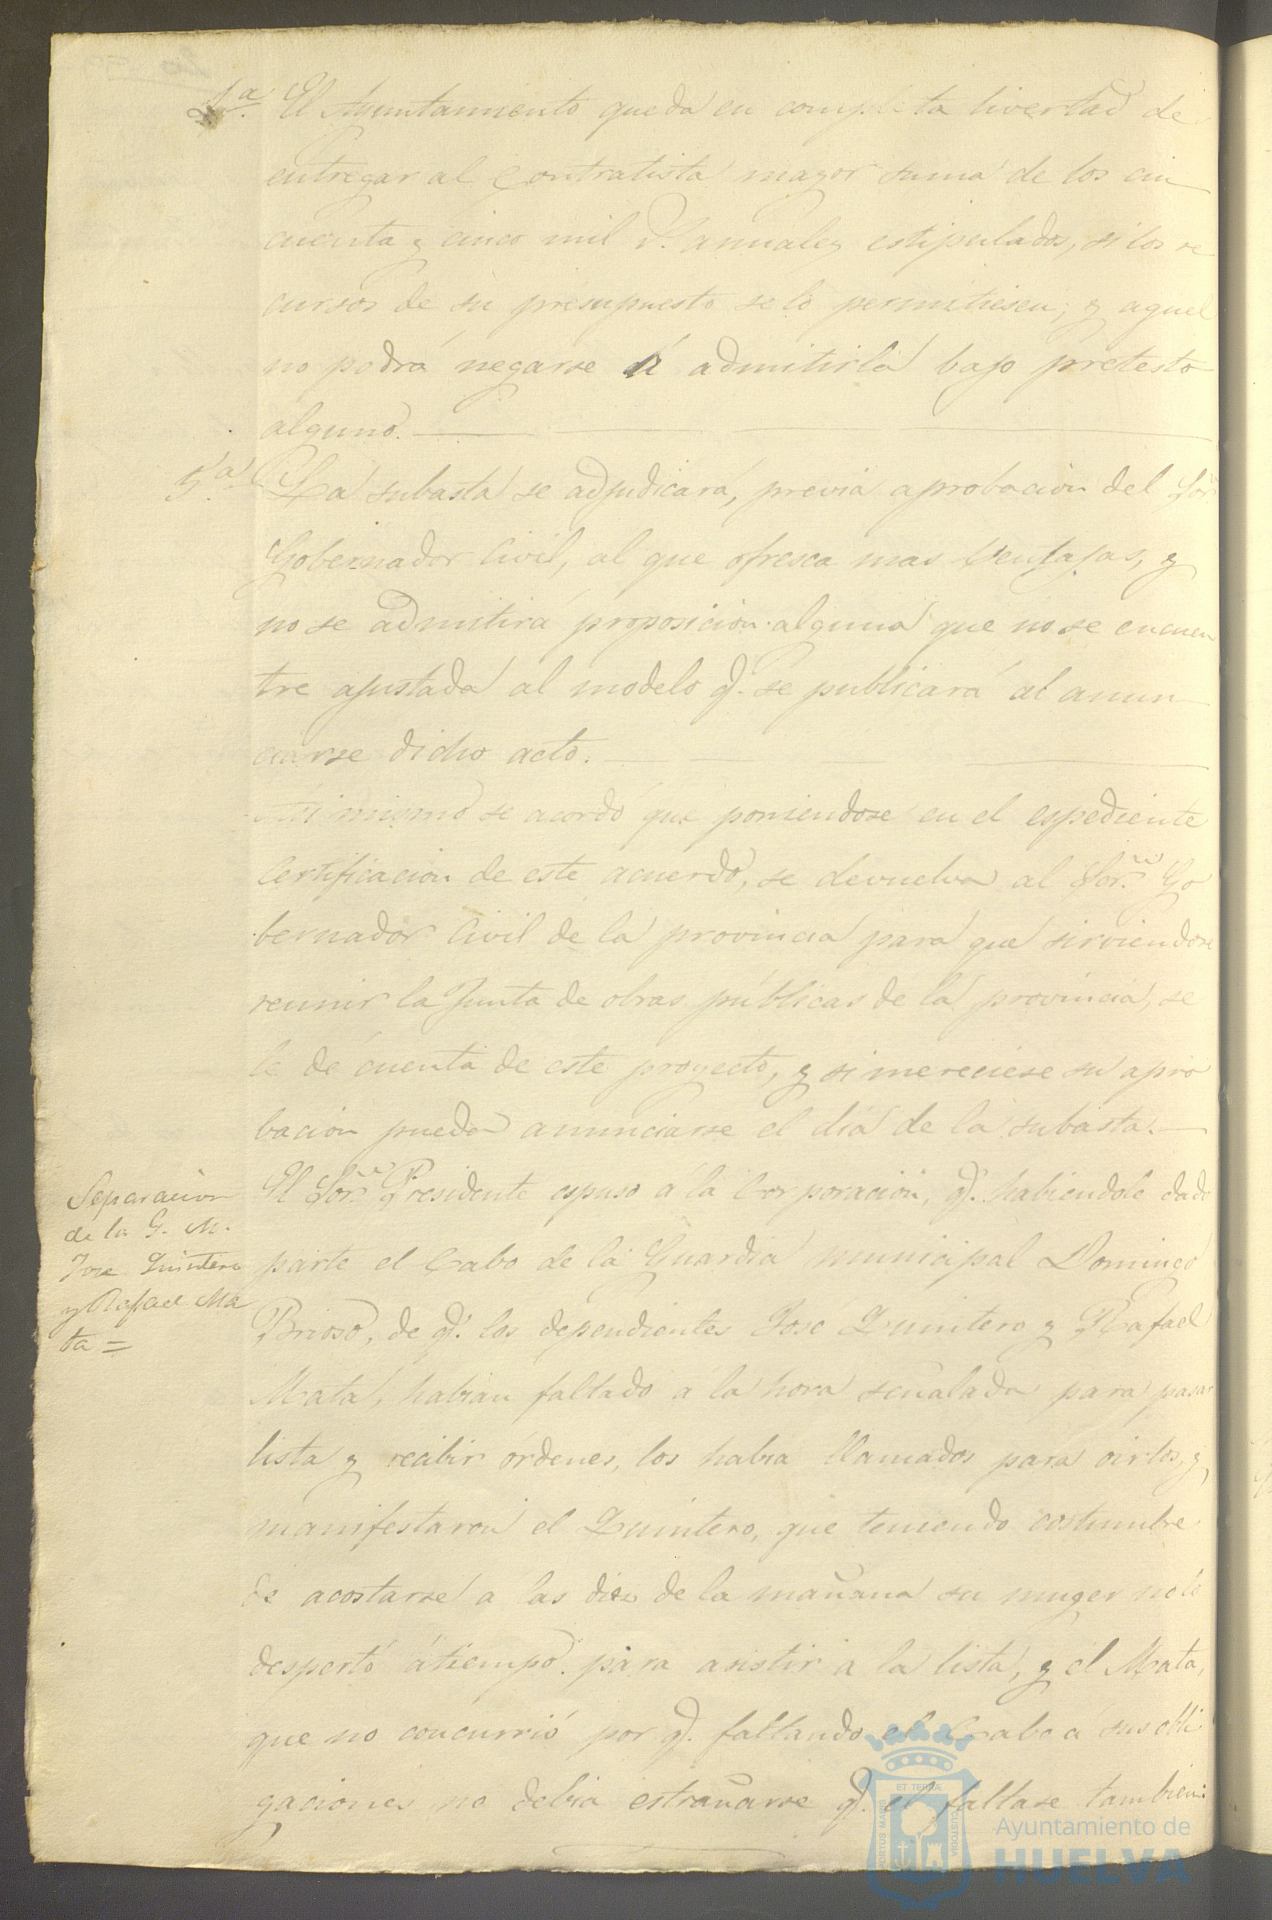 4.ª El Ayuntamiento queda en completa livertad de
entregar al Contratista mayor suma de los cin
cuenta y cinco mil r.^s anuales estipulados, si los re
cursos de su presupuesto se lo permitiesen; y aquel
no podrá negarse á admitirla bajo pretesto
alguno.
5.ª La subasta se adjudicará, previa aprobacion del Sor.
Gobernador Civil, al que ofresca mas ventajas, y
no se admitirá proposicion alguna que no se encuen
tre ajustada al modelo q. se publicará al anun
ciarse dicho acto.
Asi mismo se acordó que poniendose en el espediente
Certificacion de este acuerdo, se devuelva al Sor. Go
bernador Civil de la provincia para que sirviendose
reunir la Junta de obras públicas de la provincia, se
le dé cuenta de este proyecto, y si mereciese su apro
bacion pueda anunciarse el dia de la subasta.
Separacion
de la G. M.
Jose Quintero
y Rafael Ma
ta =
El Sor. Presidente espuso á la Corporacion, q. habiendole dado
parte el Cabo de la Guardia municipal Domingo
Brioso, de q. los dependientes Jose Quintero y Rafael
Mata, habian faltado a la hora señalada para pasar
lista y recibir órdenes, los habia llamados para oirlos, y
manifestaron el Quintero, que teniendo costumbre
de acostarse a las diez de la mañana su muger no le
despertó átiempo para asistir a la lista, y el Mata,
que no concurrió por q. faltando el Cabo á sus obli
gaciones no debia estrañarse q. el faltase tambien:
PORTUS MARIS ET TERRAE CUSTODIA
Ayuntamiento de
HUELVA